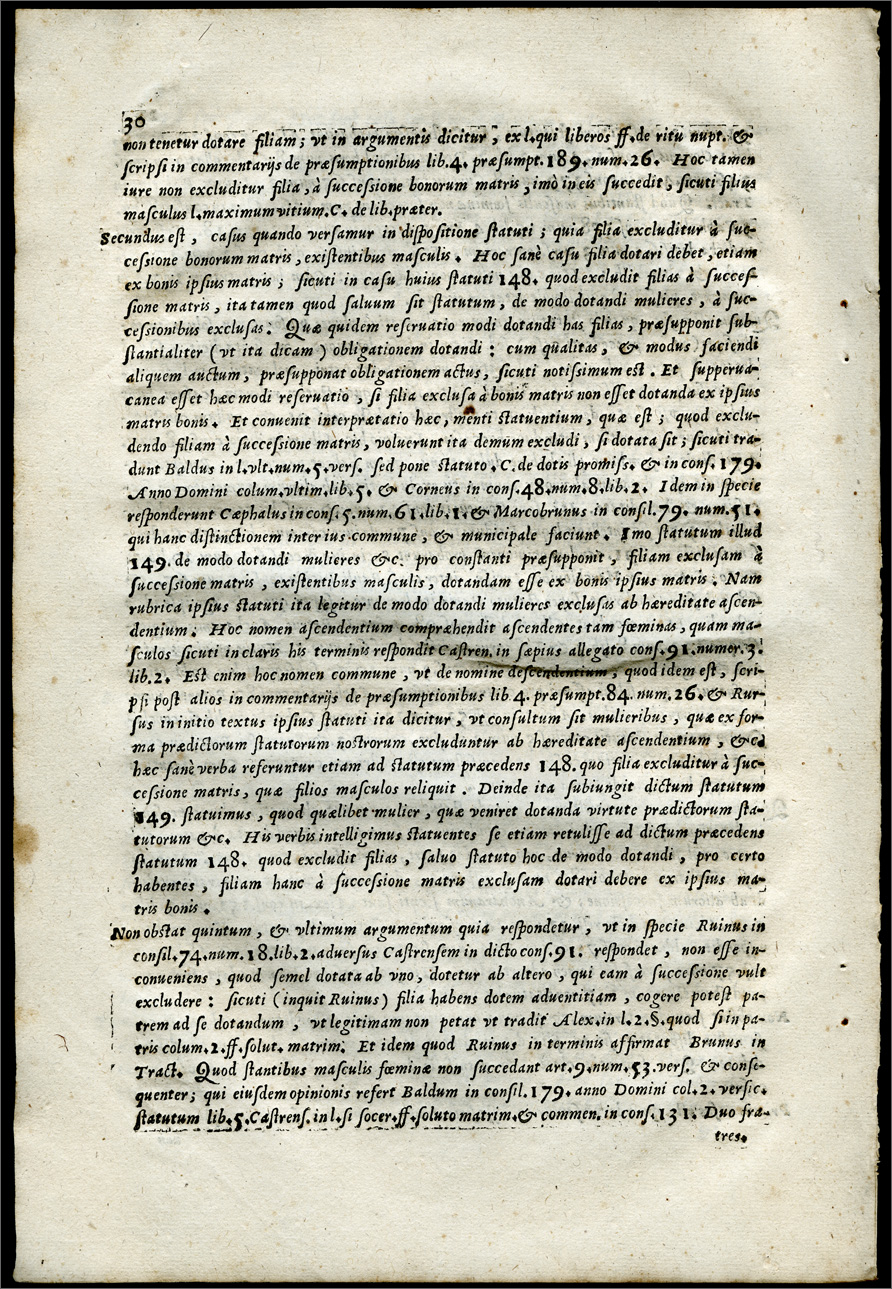 30
non tenetur dotare filiam; vt in argumentis dicitur, ex l. qui liberos ff. de ritu nupt. &
ſcripſi in commentarijs de præſumptionibus lib. 4. præſumpt. 189. num. 26. Hoc tamen
iure non excluditur filia, à ſucceſſione bonorum matris, imò in eis ſuccedit, ſicuti filius
maſculus l. maximum vitium. C. de lib. præter.
Secundus est, caſus quando verſamur in diſpoſitione ſtatuti; quia filia excluditur à ſuc-
ceſſione bonorum matris, exiſtentibus maſculis. Hoc ſanè caſu filia dotari debet, etiam
ex bonis ipſius matris; ſicuti in caſu huius ſtatuti 148. quod excludit filias à ſucceſ-
ſione matris, ita tamen quod ſaluum ſit ſtatutum, de modo dotandi mulieres, à ſuc-
ceſſionibus excluſas. Quæ quidem reſeruatio modi dotandi has filias, præſupponit ſub-
ſtantialiter (vt ita dicam) obligationem dotandi: cum qualitas, & modus faciendi
aliquem auctum, præſupponat obligationem actus, ſicuti notiſſimum eſt. Et ſupperua-
canea eſſet hæc modi reſeruatio, ſi filia excluſa à bonis matris non eſſet dotanda ex ipſius
matris bonis. Et conuenit interprætatio hæc, menti ſtatuentium, quæ eſt; quod exclu-
dendo filiam à ſucceſſione matris, voluerunt ita demum excludi, ſi dotata ſit; ſicuti tra-
dunt Baldus in l. vlt. num. 5. verſ. ſed pone ſtatuto. C. de dotis promiſſ. & in conſ. 179.
Anno Domini colum. vltim. lib. 5. & Corneus in conſ. 48. num. 8. lib. 2. Idem in ſpecie
reſponderunt Cæphalus in conſ. 5. num. 61. lib. 1. & Marcobrunus in conſil. 79. num. 51.
qui hanc diſtinctionem inter ius commune, & municipale faciunt. Imo ſtatutum illud
149. de modo dotandi mulieres &c. pro conſtanti præſupponit, filiam excluſam à
ſucceſſione matris, exiſtentibus maſculis, dotandam eſſe ex bonis ipſius matris. Nam
rubrica ipſius ſtatuti ita legitur de modo dotandi mulieres excluſas ab hæreditate aſcen-
dentium. Hoc nomen aſcendentium compræhendit aſcendentes tam fœminas, quam ma-
ſculos ſicuti in claris his terminis reſpondit Caſtren. in ſæpius allegato conſ. 91. numer. 3.
lib. 2. Eſt enim hoc nomen commune, vt de nomine deſcendentium, quod idem eſt, ſcri-
pſi poſt alios in commentarijs de præſumptionibus lib 4. præſumpt. 84. num. 26. & Rur-
ſus in initio textus ipſius ſtatuti ita dicitur, vt conſultum ſit mulieribus, quæ ex for-
ma prædictorum ſtatutorum noſtrorum excluduntur ab hæreditate aſcendentium, &c.
hæc ſanè verba referuntur etiam ad ſtatutum præcedens 148. quo filia excluditur à ſuc-
ceſſione matris, quæ filios maſculos reliquit. Deinde ita ſubiungit dictum ſtatutum
149. ſtatuimus, quod quælibet mulier, quæ veniret dotanda virtute prædictorum ſta-
tutorum &c. His verbis intelligimus ſtatuentes ſe etiam retuliſſe ad dictum præcedens
ſtatutum 148. quod excludit filias, ſaluo ſtatuto hoc de modo dotandi, pro certo
habentes, filiam hanc à ſucceſſione matris excluſam dotari debere ex ipſius ma-
tris bonis.
Non obſtat quintum, & vltimum argumentum quia reſpondetur, vt in ſpecie Ruinus in
conſil. 74. num. 18. lib. 2. aduerſus Caſtrenſem in dicto conſ. 91. reſpondet, non eſſe in-
conueniens, quod ſemel dotata ab vno, dotetur ab altero, qui eam à ſucceſſione vult
excludere: ſicuti (inquit Ruinus) filia habens dotem aduentitiam, cogere poteſt pa-
trem ad ſe dotandum, vt legitimam non petat vt tradit Alex. in l. 2. §. quod ſi in pa-
tris colum. 2. ff. ſolut. matrim. Et idem quod Ruinus in terminis affirmat Brunus in
Tract. Quod ſtantibus maſculis fœminæ non ſuccedant art. 9. num. 53. verſ. & conſe-
quenter; qui eiuſdem opinionis refert Baldum in conſil. 179. anno Domini col. 2. verſic.
ſtatutum lib. 5. Caſtrenſ. in l. ſi ſocer. ff. ſoluto matrim. & commen. in conſ. 131. Duo fra-
tres.